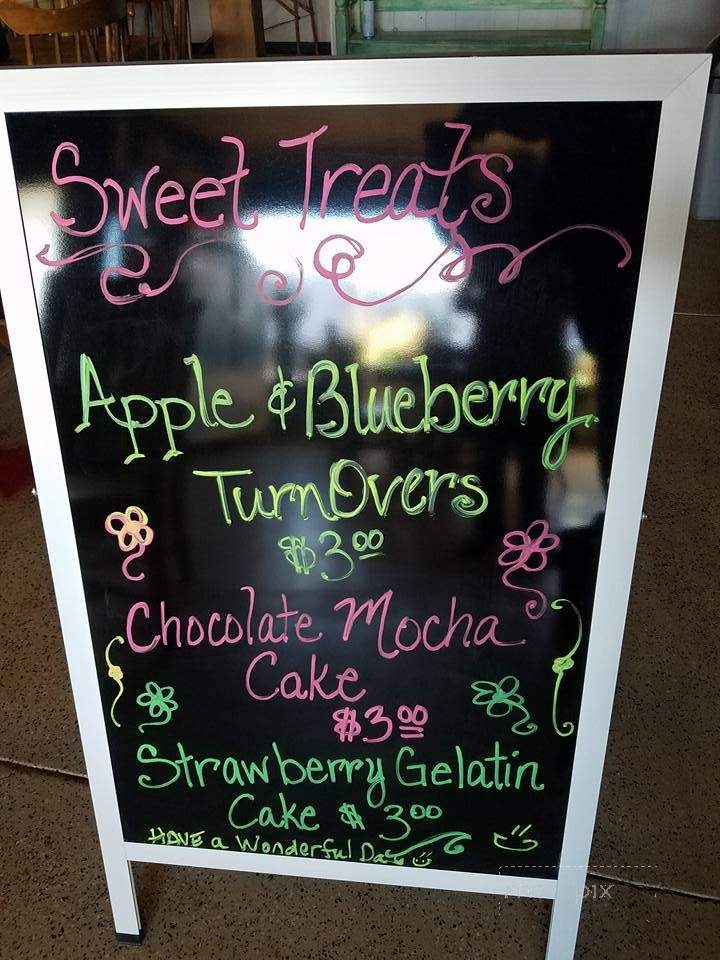 Sweet Treats
Apple & Blueberry
TurnOvers
$3.00
Chocolate Mocha
Cake
$3.00
Strawberry Gelatin
Cake $3.00
HAVE a Wonderful Day